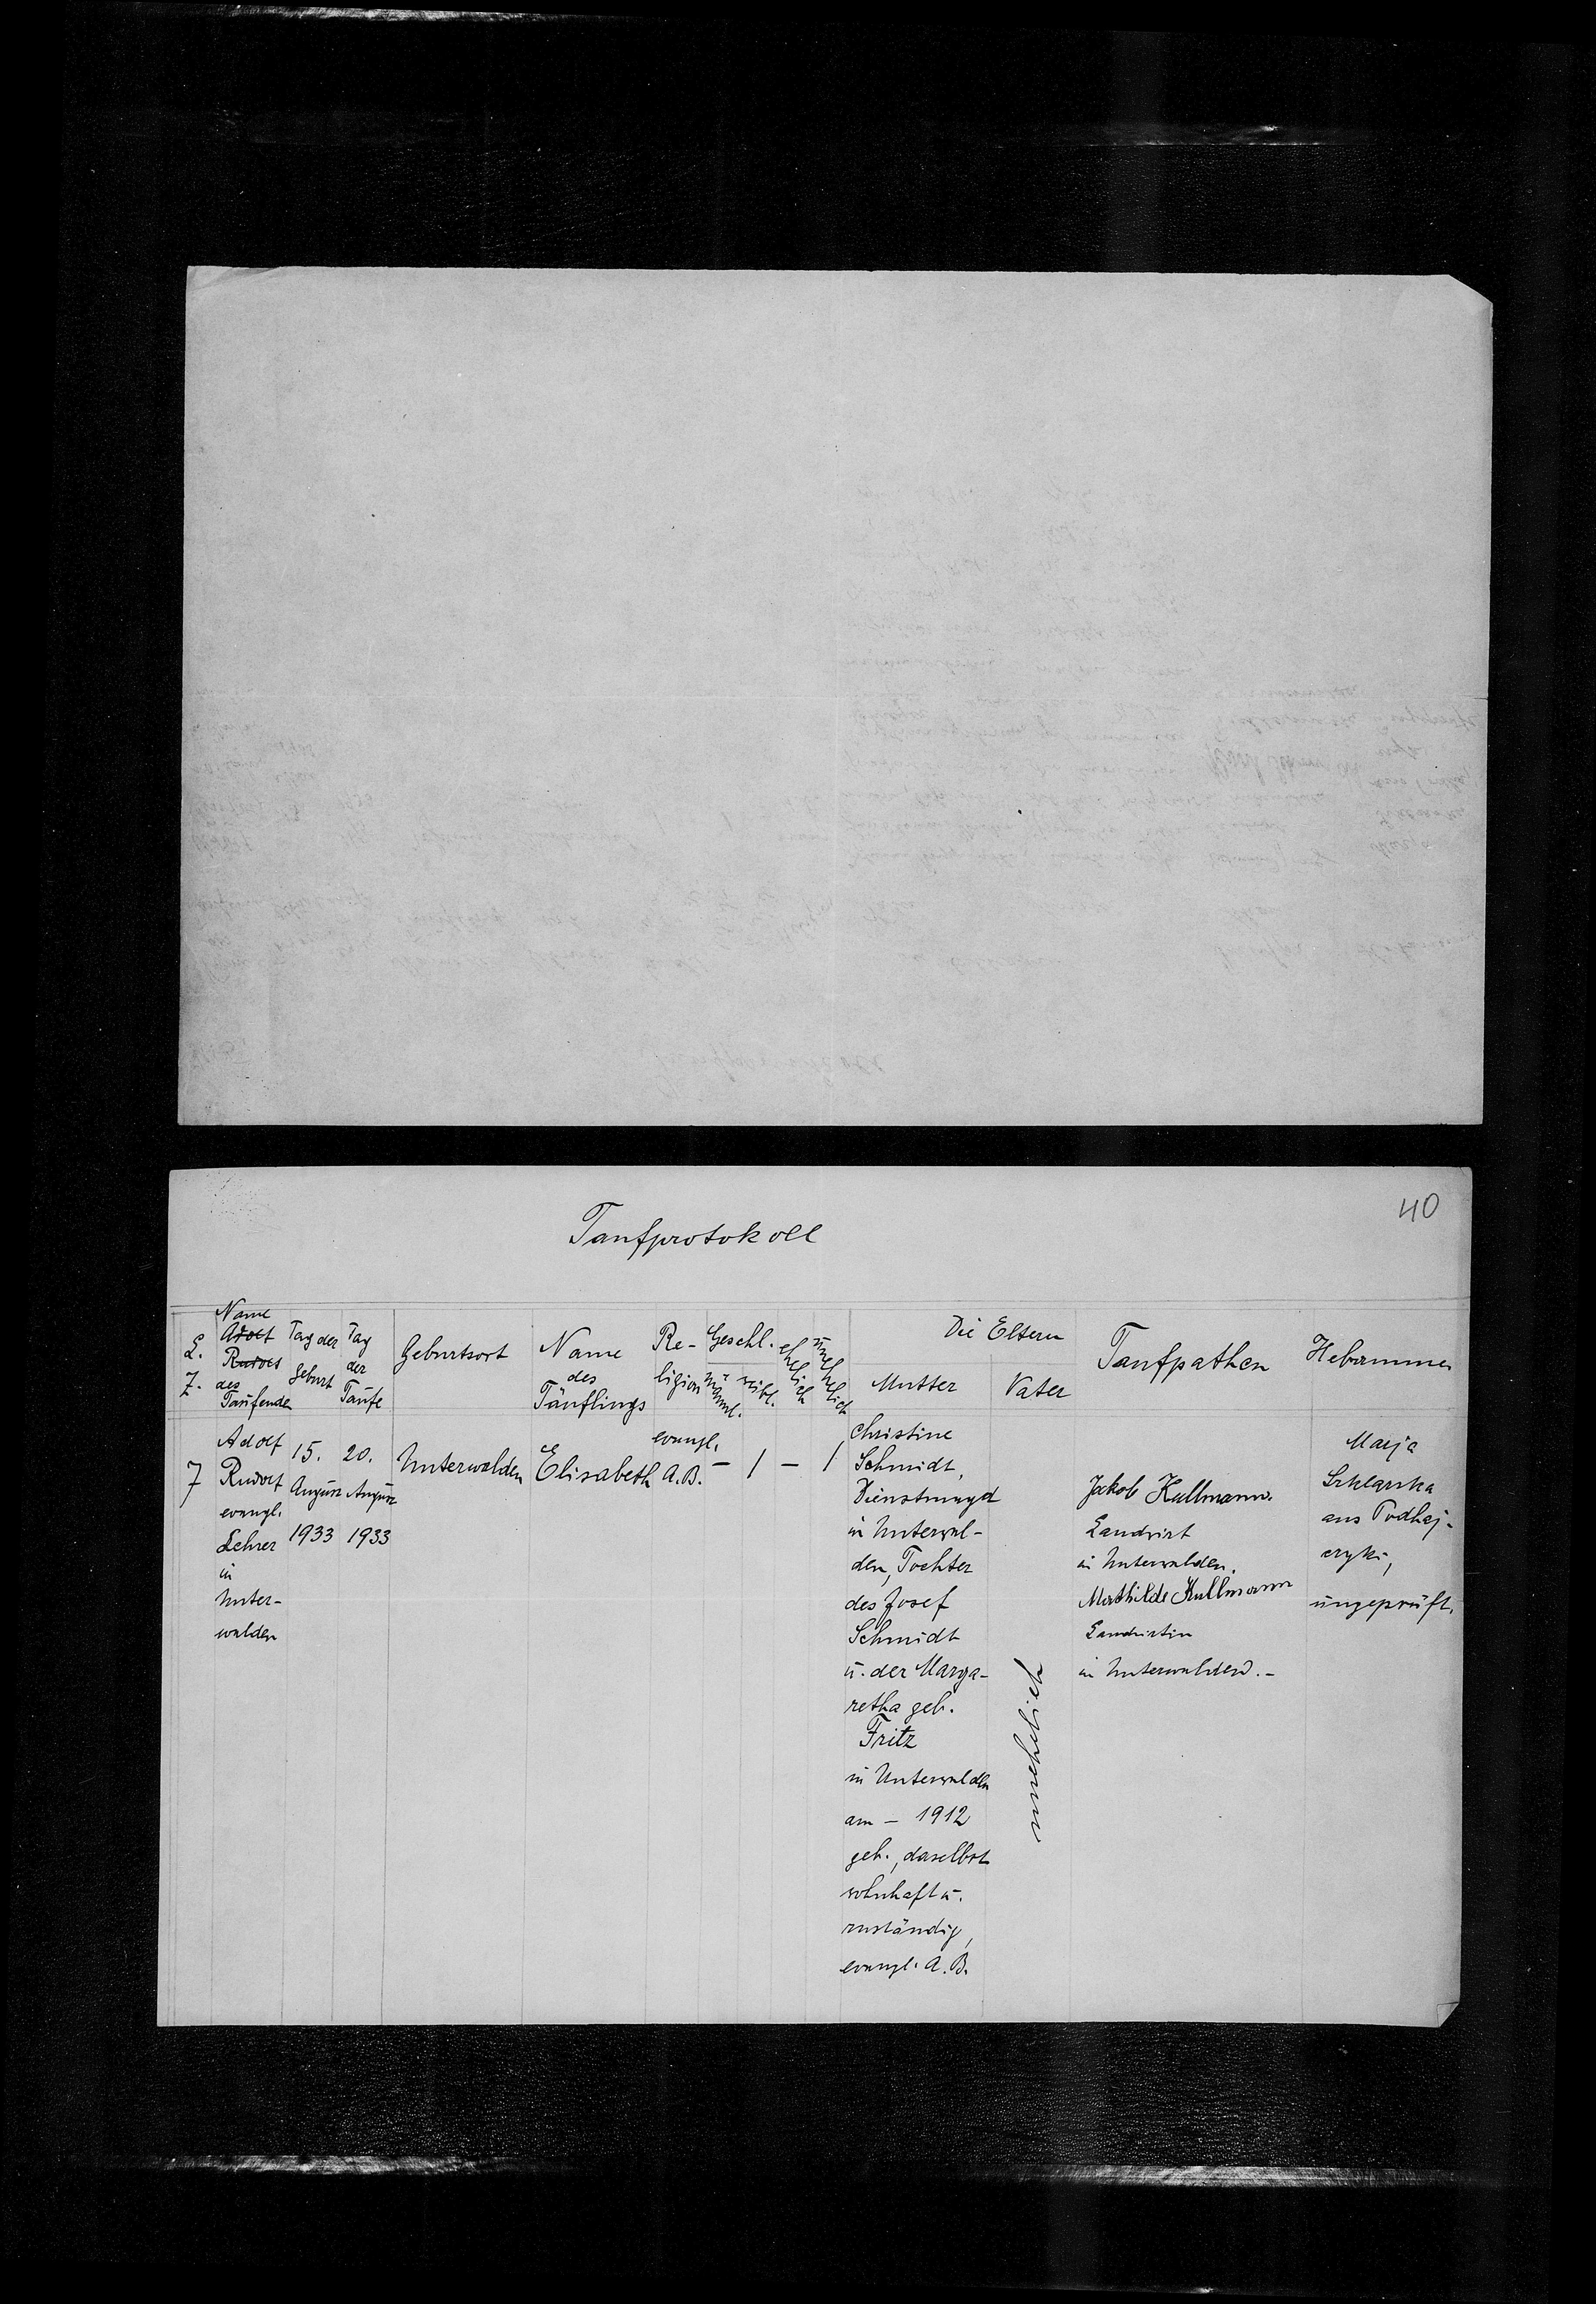 40
Taufprotokoll
L. Z.
Name
Adolf
Rudolf
des
Taufenden
Tag der
Geburt
Tag
der
Taufe
Geburtsort
Name
des
Täuflings
Re-
ligion
Geschl.
männl.
weibl.
ehelich
unehelich
Die Eltern
Mutter
Vater
Taufpathen
Hebamme
7
Adolf
Rudolf
evangl.
Lehrer
in
Unter-
walden
15.
August
1933
20.
August
1933
Unterwalden
Elisabeth
evangl.
A.B.
-
1
-
1
Christine
Schmidt,
Dienstmagd
in Unterwal-
den, Tochter
des Josef
Schmidt
u. der Marga-
retha geb.
Fritz
in Unterwalden
am - 1912
geb., daselbst
wohnhaft u.
zuständig,
evangl. A.B.
unehelich
Jakob Kullmann.
Landwirt
in Unterwalden.
Mathilde Kullmann
Landwirtin
in Unterwalden.-
Marja
Szklarska
aus Podhaj-
czyki,
ungeprüft.